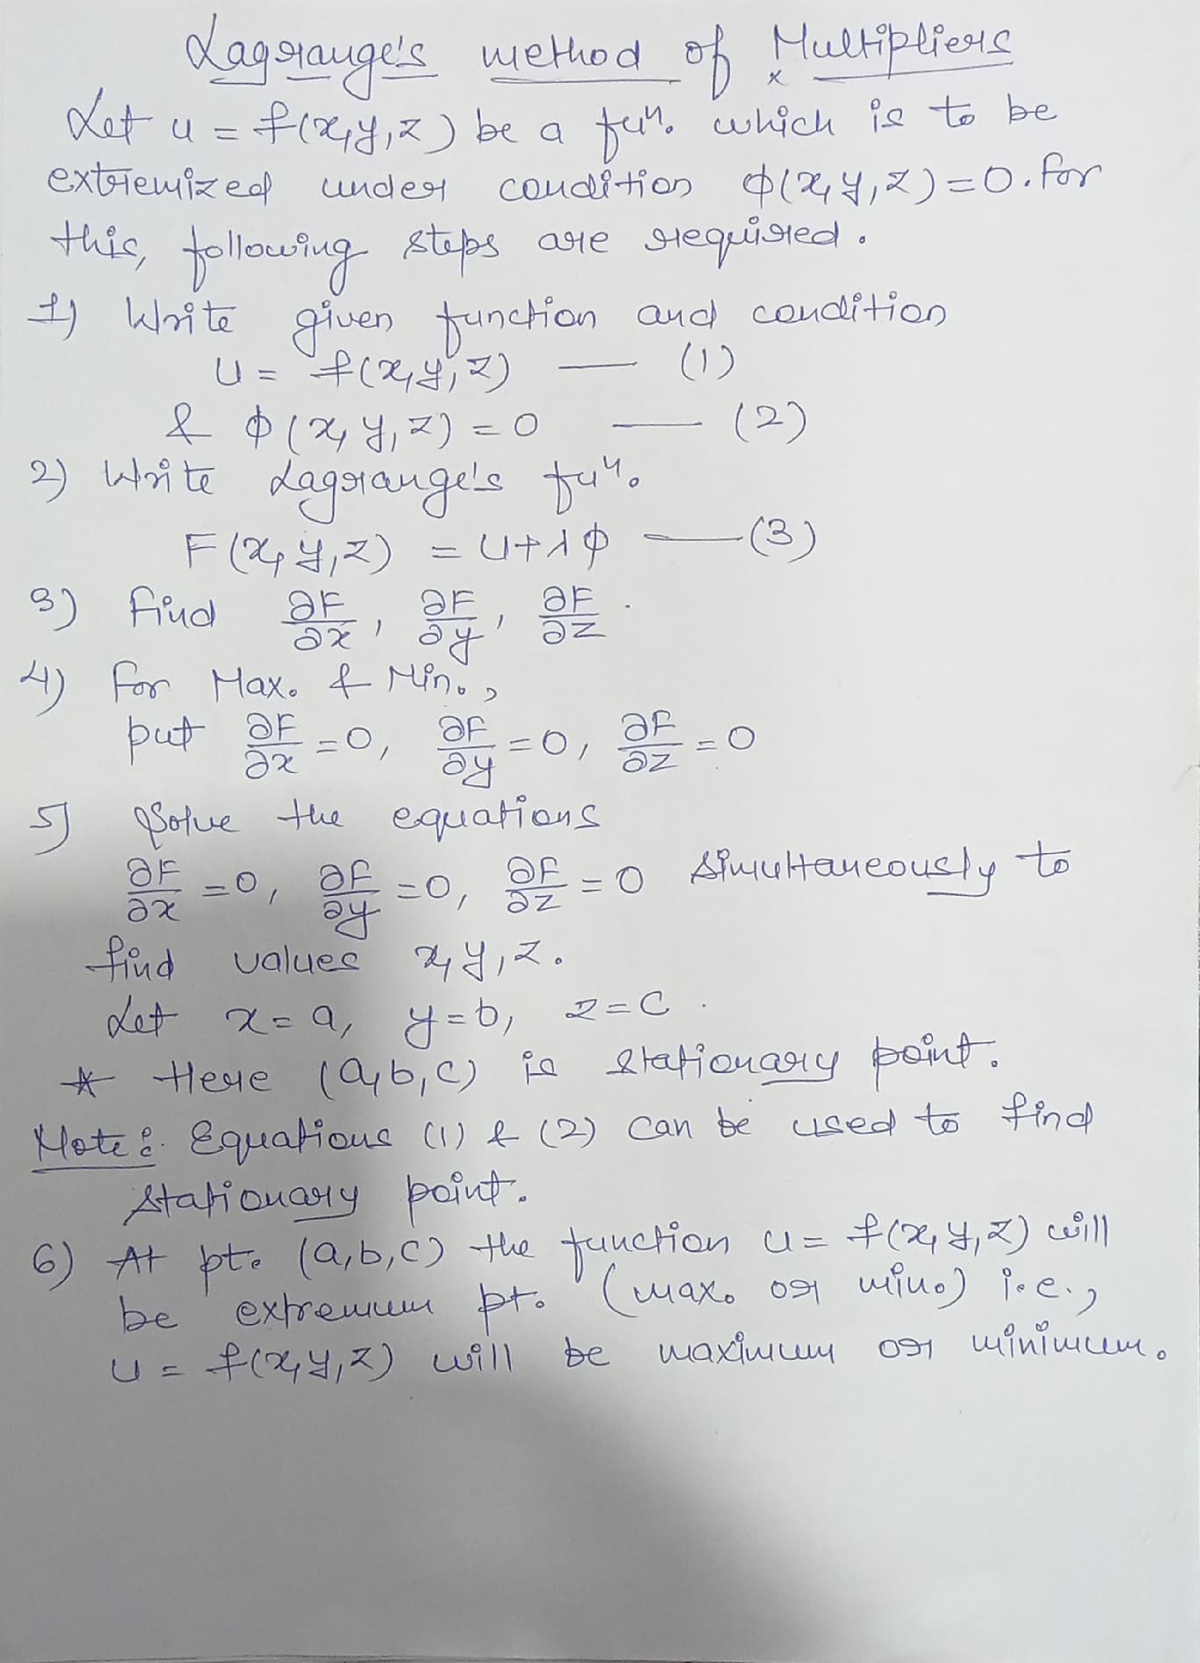 Lagrange's method of Multipliers
Let u = f(x,y,z) be a fuⁿ. which is to be
extremized under condition ϕ(x,y,z)=0. for
this, following steps are required.
1) Write given function and condition
u = f(x,y,z) — (1)
& ϕ(x,y,z) = 0 — (2)
2) Write Lagrange's fuⁿ.
F(x,y,z) = u+λϕ — (3)
3) find ∂F/∂x, ∂F/∂y, ∂F/∂z.
4) for Max. & Min.,
put ∂F/∂x = 0, ∂F/∂y = 0, ∂F/∂z = 0
5) Solve the equations
∂F/∂x = 0, ∂F/∂y = 0, ∂F/∂z = 0 simultaneously to
find values x,y,z.
Let x = a, y = b, z = c.
* Here (a,b,c) is stationary point.
Note:. Equations (1) & (2) can be used to find
stationary point.
6) At pt. (a,b,c) the function u = f(x,y,z) will
be extremum pt. (max. or min.) i.e.,
u = f(x,y,z) will be maximum or minimum.